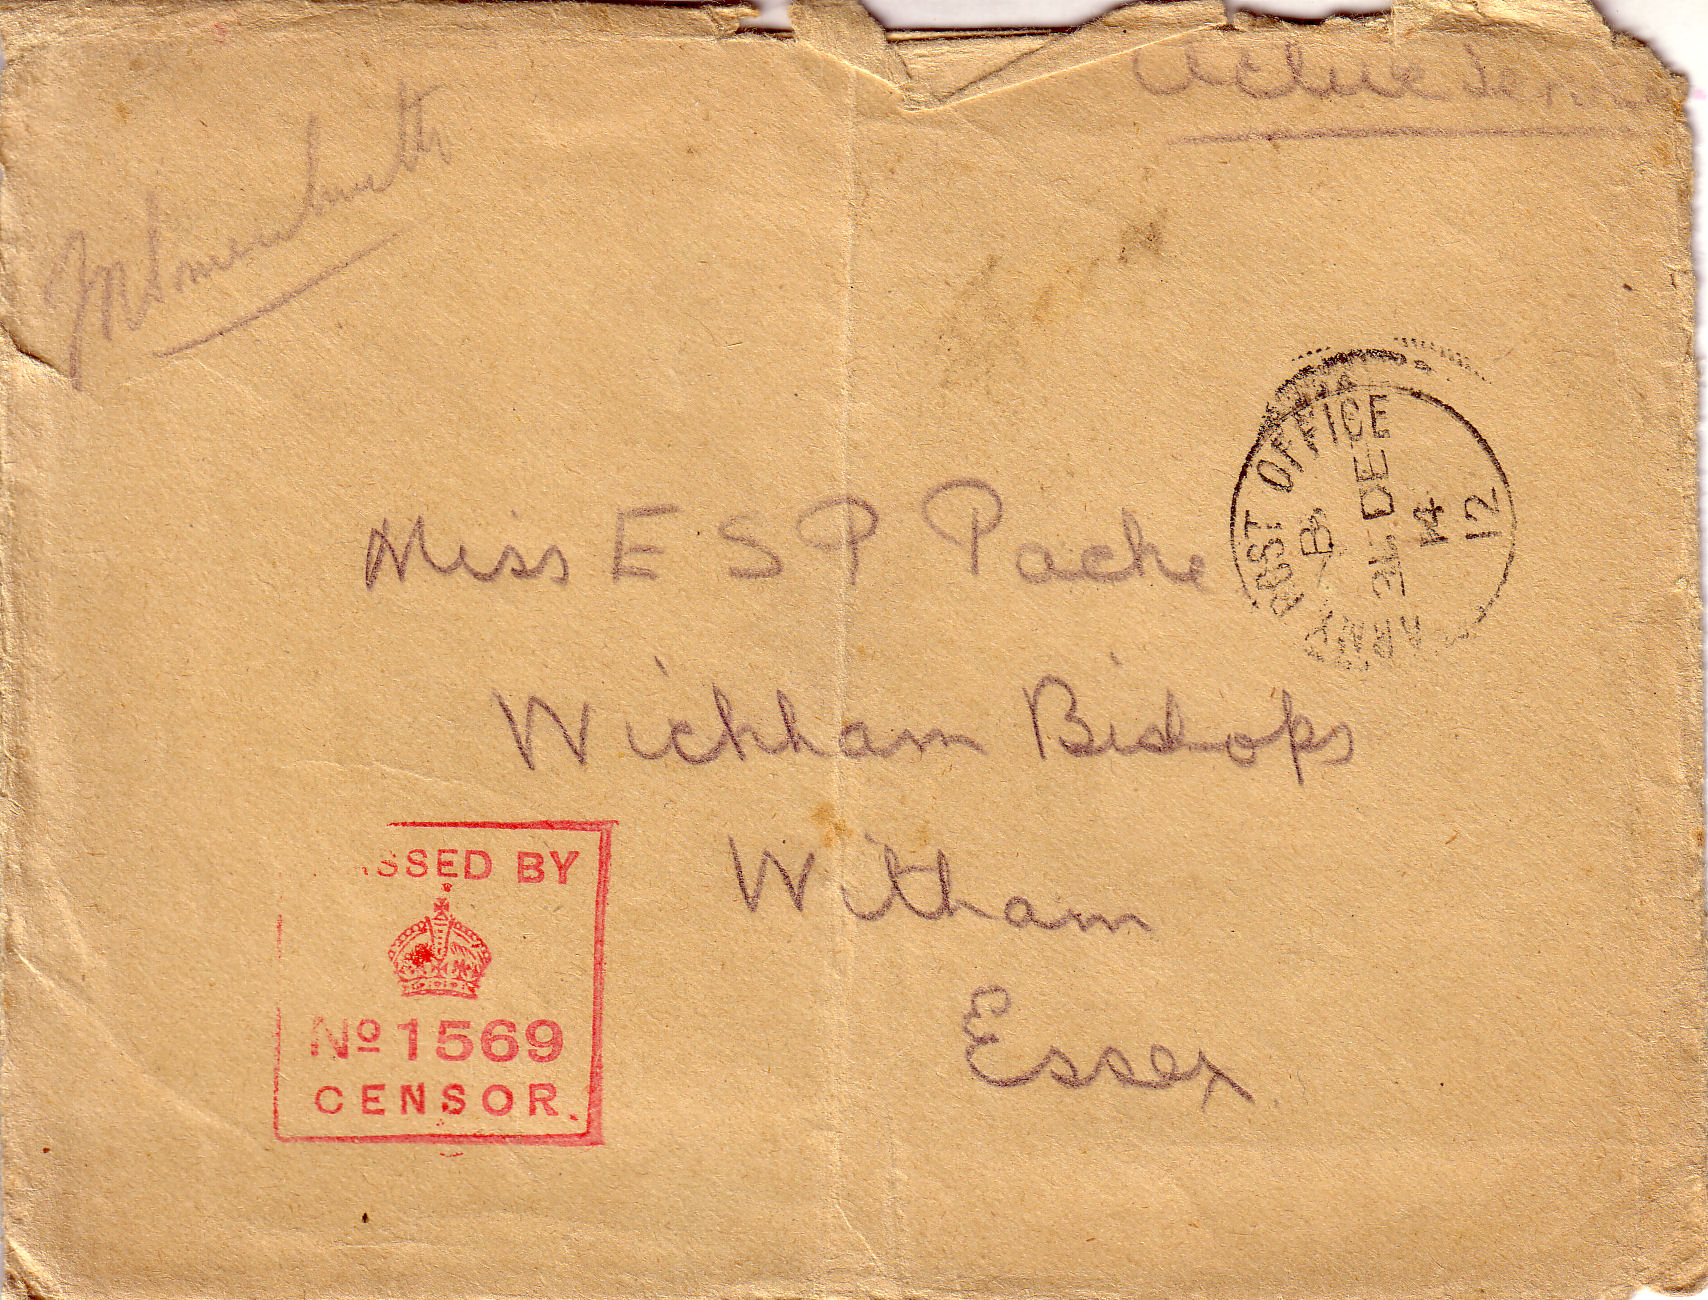 Active Ser
Miss E S P Pache
Wickham Bishops
Witham
Essex
ARMY POST OFFICE
B
31 DE
14
12
SSED BY
No 1569
CENSOR.